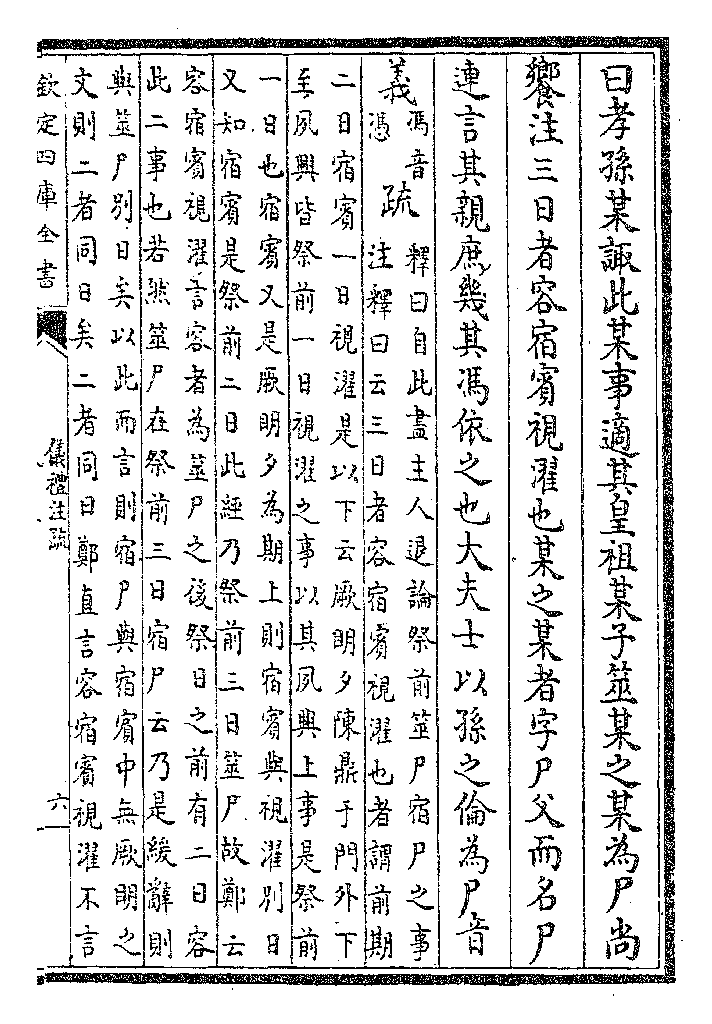 曰孝孫某諏此某事適其皇祖某子筮某之某為尸尚
饗注三日者容宿賓視濯也某之某者字尸父而名尸
連言其親庶幾其馮依之也大夫士以孫之倫為尸音
義馮音
憑
疏釋曰自此盡主人退論祭前筮尸宿尸之事
注釋曰云三日者容宿賓視濯也者謂前期
二日宿賓一日視濯是以下云厥明夕陳鼎于門外下
至夙興皆祭前一日視濯之事以其夙興上事是祭前
一日也宿賓又是厥明夕為期上則宿賓與視濯別日
又知宿賓是祭前二日此經乃祭前三日筮尸故鄭云
容宿賓視濯言容者為筮尸之後祭日之前有二日容
此二事也若然筮尸在祭前三日宿尸云乃是緩辭則
與筮尸別日矣以此而言則宿尸與宿賓中無厥明之
文則二者同日矣二者同日鄭直言容宿賓視濯不言
欽定四庫全書
儀禮注疏
六